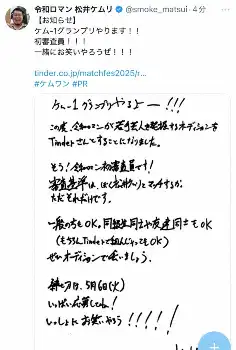 令和ロマン 松井ケムリ @smoke_matsui・4分
【お知らせ】
ケム-1グランプリやります！！
初審査員！！！
一緒にお笑いやろうぜ！！！
tinder.co.jp/matchfes2025/r...
#ケムワン #PR
ケム-1グランプリやるよー!!!
この度、令和ロマンが若手芸人を発掘するオーディションを
Tinderさんとすることになりました。
そう！令和ロマン初審査員です！
審査基準は、ぼく(松井ケムリ)とマッチするか。
ただそれだけです。
一般の方もOK。同級生同士や友達同士もOK
(もちろんTinderで組んじゃってもOK)
ぜひオーディションで会いましょう。
締め切りは、5月6日(火)
いっぱい応募してね！
いっしょにお笑いやろう!!!!!